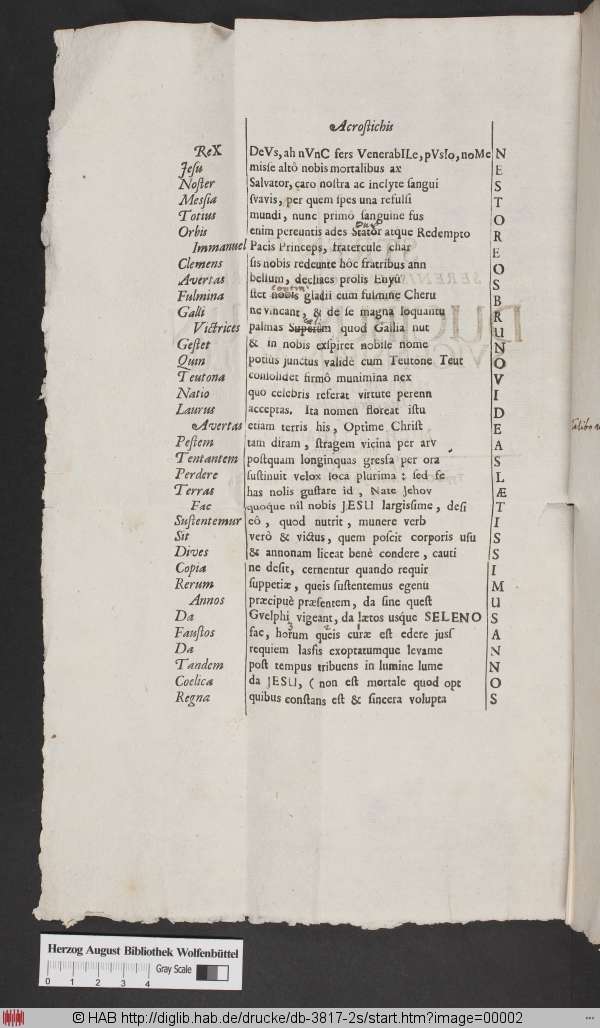 Acrostichis
ReX DeVs, ah nVnC fers VenerabILe, pVsIo, noMe N
Jesu misse altô nobis mortalibus ax E
Noster Salvator, caro nostra ac inclyte sangui S
Messia svavis, per quem spes una refulsi T
Totius mundi, nunc primò sanguine fus O
Orbis enim pereuntis ades Stator atque Redempto R
Immanuel Pacis Princeps, fratercule char E
Clemens sis nobis redeunte hôc fratribus ann O
Avertas bellum, declines prolis Enyû S
Fulmina stet nobis gladii cum fulmine Cheru B
Galli ne vincant, & de se magna loquantu R
Victrices palmas Superûm quod Gallia nut U
Gestet & in nobis exspiret nobile nome N
Quin potius junctus validè cum Teutone Teut O
Teutona consolidet firmô munimina nex V
Natio quo celebris referat virtute perenn I
Laurus acceptas. Ita nomen floreat istu D
Avertas etiam terris his, Optime Christ E
Pestem tam diram, stragem vicina per arv A
Tentantem postquam longinquas gressa per ora S
Perdere sustinuit velox loca plurima: sed fe L
Terras has nolis gustare id, Nate Jehov Æ
Fac quoque nil nobis JESU largissime, desi T
Sustentemur eô, quod nutrit, munere verb I
Sit verò & victus, quem poscit corporis usu S
Dives & annonam liceat benè condere, cauti S
Copia ne desit, cernentur quando requir I
Rerum suppetiæ, queis sustentemus egenu M
Annos præcipuè præsentem, da sine quest U
Da Gvelphi vigeant, da lætos usque SELENO S
Faustos fac, horum queis curæ est edere juss A
Da requiem lassis exoptatumque levame N
Tandem post tempus tribuens in lumine lume N
Coelica da JESU, (non est mortale quod opt O
Regna quibus constans est & sincera volupta S
Herzog August Bibliothek Wolfenbüttel
Gray Scale
0 1 2 3 4
© HAB http://diglib.hab.de/drucke/db-3817-2s/start.htm?image=00002